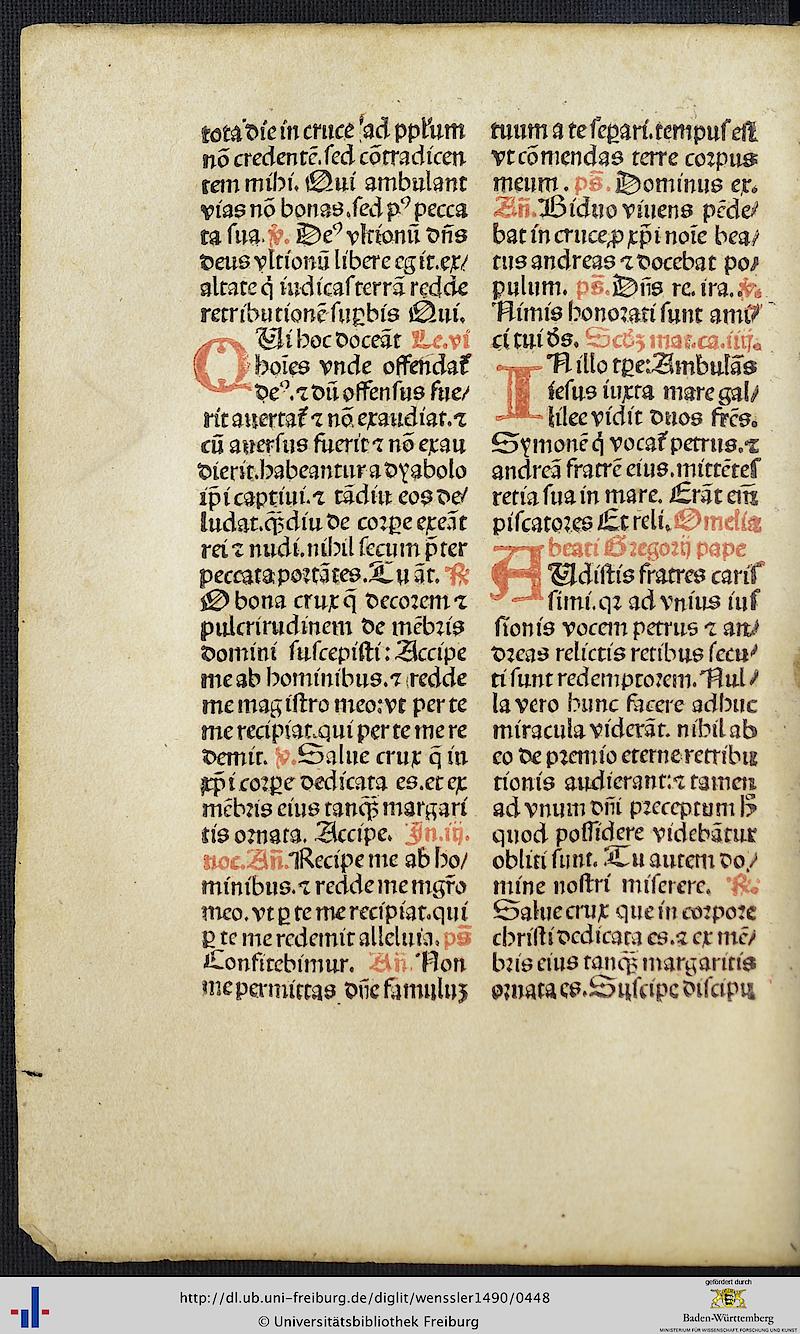 tota die in cruce ad pplʼum
nō credentē. sed cōtradicen
tem mihi. Qui ambulant
vias nō bonas. sed pꝰ pecca
ta sua. ℣. Deꝰ vltionū dn̄s
deus vltionū libere egit. ex/
altate q̄ iudicas terrā redde
retributionē suꝑbis Qui.
QUi hoc doceāt Le. vi
hoīes vnde offendat᷑
deꝰ. ⁊ dū offensus fue/
rit auertat᷑ ⁊ nō exaudiat. ⁊
cū auersus fuerit ⁊ nō exau
dierit. habeantur a dyabolo
ip̄i captiui. ⁊ tādiu eos de/
ludat. qȝ̄diu de corꝑe exeāt
rei ⁊ nudi. nihil secum p̄ter
peccata portātes. Tu āt. ℟
O bona crux q̄ decorem ⁊
pulcritudinem de mēbris
domini suscepisti: Accipe
me ab hominibus. ⁊ redde
me magistro meo: vt per te
me recipiat. qui per te me re
demit. ℣. Salue crux q̄ in
xp̄i corꝑe dedicata es. et ex
mēbris eius tanqȝ̄ margari
tis ornata. Accipe. In. iij.
noc. Añ. Recipe me ab ho/
minibus. ⁊ redde me mgr̄o
meo. vt ꝑ te me recipiat. qui
ꝑ te me redemit alleluia. ps̄
Confitebimur. Añ. Non
me permittas dn̄e famulūȝ
tuum a te separi. tempus est
vt cōmendas terre corpus
meum. ps̄. Dominus ex.
Añ. Biduo viuens pēde/
bat in cruce, ꝓ xp̄i noīe bea/
tus andreas ⁊ docebat po/
pulum. ps̄. Dn̄s re. ira. ℣.
Nimis honorati sunt ami/
ci tui ds̄. Scd̄ȝ mat. ca. iiij.
IN illo tꝑe: Ambulās
iesus iuxta mare gal/
lilee vidit duos frēs.
Symonē q̄ vocat᷑ petrus. ⁊
andreā fratrē eius. mittētes
retia sua in mare. Erāt em̄
piscatores Et reli. Omelia
beati Gregorij pape
AUdistis fratres caris
simi. qꝛ ad vnius ius
sionis vocem petrus ⁊ an/
dreas relictis retibus secu/
ti sunt redemptorem. Nul/
la vero hunc facere adhuc
miracula viderāt. nihil ab
eo de premio eterne retribu
tionis audierant: ⁊ tamen
ad vnum dn̄i preceptum h̄
quod possidere videbātur
obliti sunt. Tu autem do/
mine nostri miserere. ℟.
Salue crux que in corpore
christi dedicata es. ⁊ ex mē/
bris eius tanqȝ̄ margaritis
ornata es. Suscipe discipu
http://dl.ub.uni-freiburg.de/diglit/wenssler1490/0448
© Universitätsbibliothek Freiburg
gefördert durch
Baden-Württemberg
MINISTERIUM FÜR WISSENSCHAFT, FORSCHUNG UND KUNST